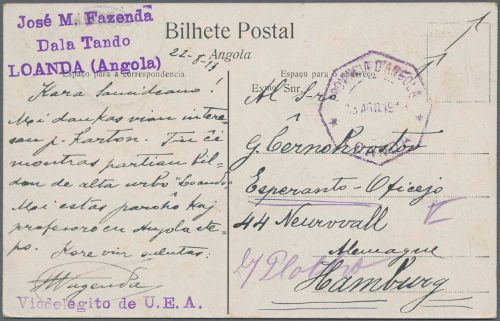 José M. Fazenda
Dala Tando
LOANDA (Angola)
Bilhete Postal
Angola
22-8-19
Espaço para a correspondencia
Espaço para o endereço
Exmo. Snr.
PROVINCIA D'ANGOLA
Kara Samideano!
Mi dankas vian interesan p. karton. Tiu ĉi
montras partian bil-
don de alta urbo "Loando"
Mi estas paroho kaj
profesoro en Angola
Kore vin salutas.
Vicdelegito de U.E.A.
Al S-ro
Esperanto-Oficejo
44 Neurwall
Alemagne
Hamburg